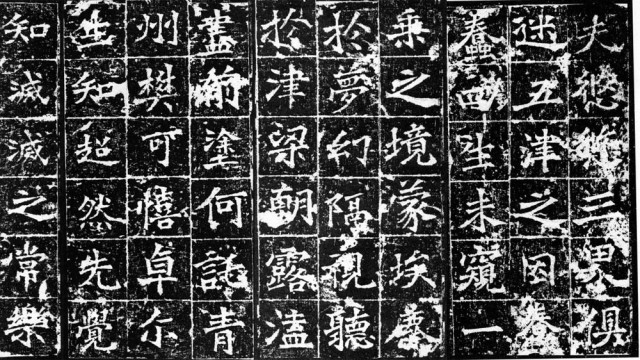 夫悠悠三界俱
迷五津之因蠢
蠢四生未窺一
乘之境蒙埃塵
於夢幻隔視聽
於津梁朝露溘
盡前塗何託青
州樊可憘卓尒
生知超然先覺
知滅滅之常樂